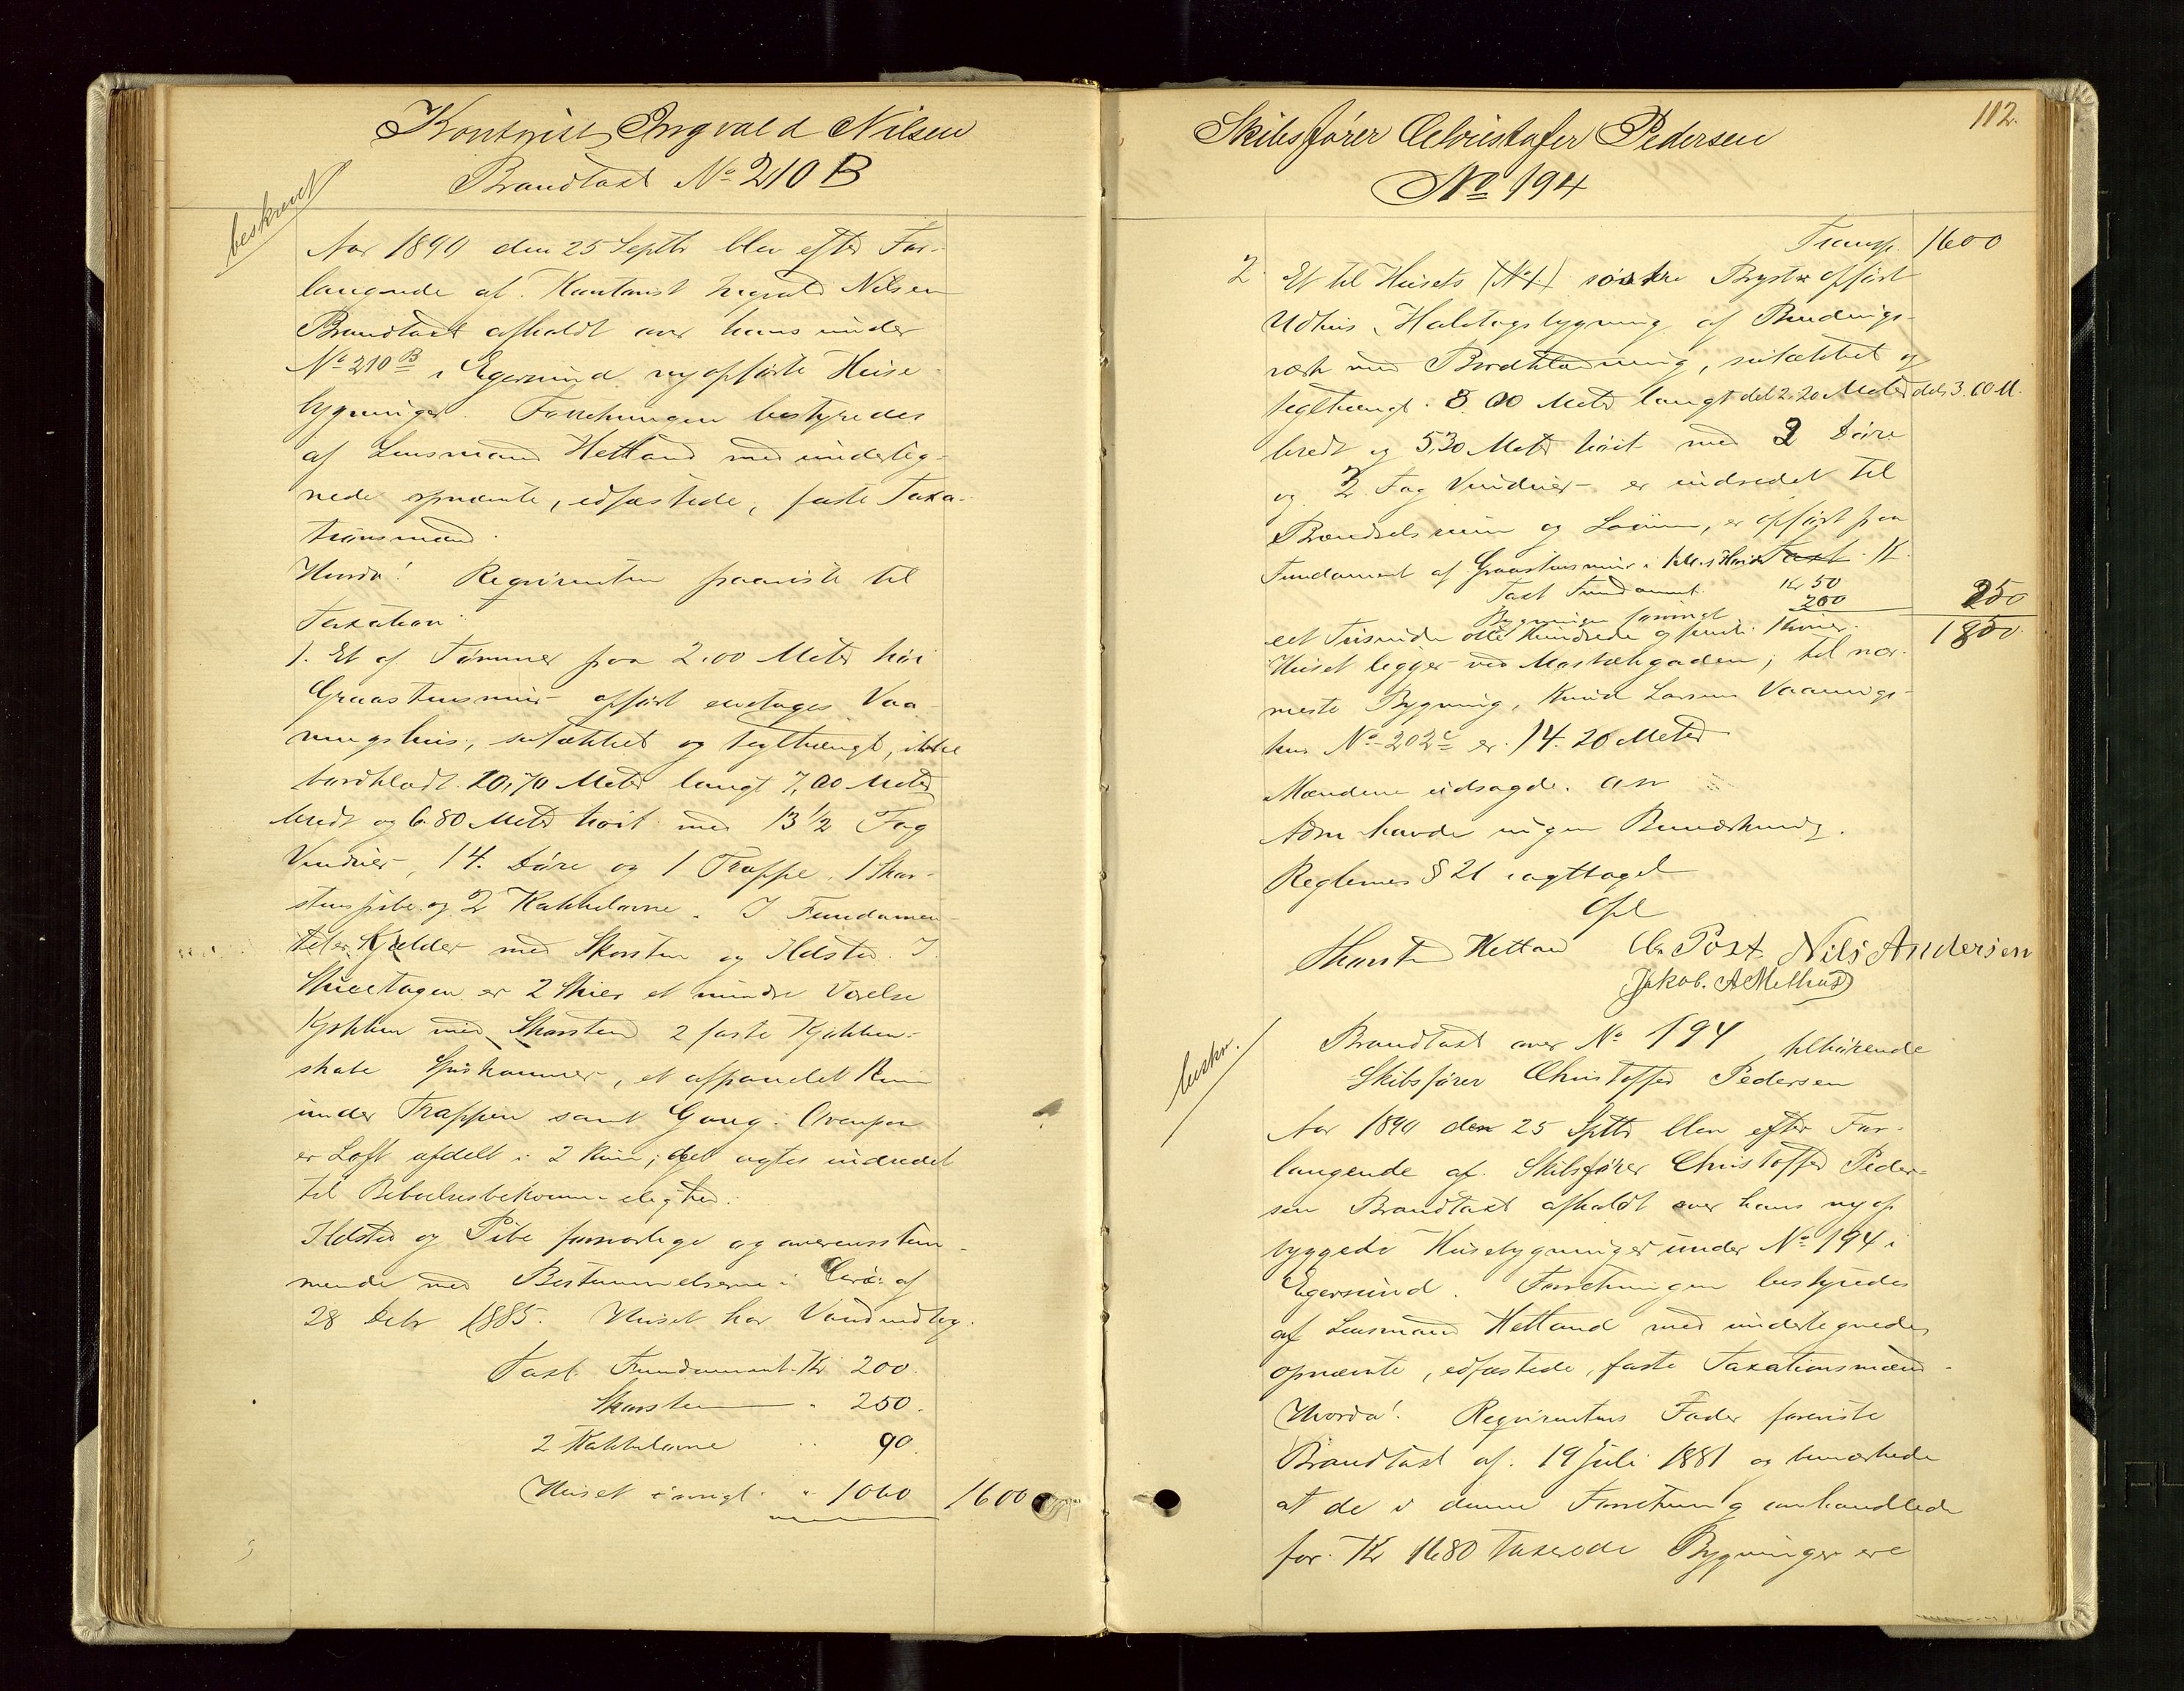 Kontorist Ingvald Nilsen
Brandtaxt No 210 B
beskrevet
Aar 1890 den 25 Septbr blev efter For-
langende af Kontorist Ingvald Nilsen
Brandtaxt afholdt over hans under
No 210 B i Egersund nyopførte Huse-
bygninger. Forretningen bestyredes
af Lensmand Hetland med underteg-
nede opnævnte, edfæstede, faste Taxa-
tionsmænd.
Hvorda! Requirenten paaviste til
Taxation:
1. Et af Tømmer paa 2,00 Meter høi
Graastensmur opført eenetages Vaa-
ningshus, sutækket og teglhængt, ikke
bordklædt. 10,70 Meter langt 7,00 Meter
bredt og 6.80 Meter høit med 13 1/2 Fag
Vinduer, 14. Døre og 1 Trappe, 1 Skor-
stenspibe og 2 Kakkelovne. I Fundamen-
tet er Kjelder med Skorsten og Ildsted. I
Stueetagen er 2 Stuer et mindre Værelse
Kjøkken med Skorsten 2 faste Kjøkken-
skabe Spiskammer, et afpanelet Rum
under Trappen samt Gang. Ovenpaa
er Loft afdelt i 2 Rum; det agtes indredet
til Beboelsesbekvemmelighed.
Ildsted og Pibe forsvarlige og overensstem-
mende med Bestemmelserne i Circ. af
28 Debr 1885. Huset har Vandindlæg.
Taxt. Fundament Kr 200.
Skorsten " 250.
2 Kakkelovne " 90.
Huset øvrigt " 1060 1600
112.
Skibsfører Christofer Pedersen
No 194
Transp. 1600
2. Et til Husets (No 1) søndre Bryst opført
Udhus, Halvtagsbygning af Bindings-
værk med Bordklædning, sutækket og
teglhængt. 8.00 Meter langt dels 2.20 Meter dels 3.60 M.
bredt og 5,30 Meter høit med 2 Døre
og 2 Fag Vinduer er indredet til
Brændselsrum og Locum, er opført paa
Fundament af Graastensmur Taxt Kr
Taxt Fundament Kr 50
Bygningen forøvrigt 200 250
eet Tusinde otte Hundrede og femti Kroner. 1850.
Huset ligger ved Mostækgaden; til nær-
meste Bygning, Knud Larsens Vaanings-
hus No 202 c er 14.20 Meter
Mændene udsagde. asv
Adm havde ingen Bemærkning.
Reglemes § 21 iagttaget
Opl
Thorsten Hetland Chr. Post Nils Andersen
Jakob. A Melhus
beskr.
Brandtaxt over No 194 tilhørende
Skibsfører Christoffer Pedersen
Aar 1890 den 25 Sptbr blev efter For-
langende af Skibsfører Christoffer Peder-
sen Brandtaxt afholdt over hans nyop-
byggede Husebygninger under No 194 i
Egersund. Forretningen bestyredes
af Lensmand Hetland med undertegnede,
opnævnte, edfæstede, faste Taxationsmænd.
Hvorda! Requirentens Fader foreviste
Brandtaxt af 19 Juli 1881 og bemærkede
at de i denne Forretning omhandlede
for Kr 1680 taxerede Bygninger ere